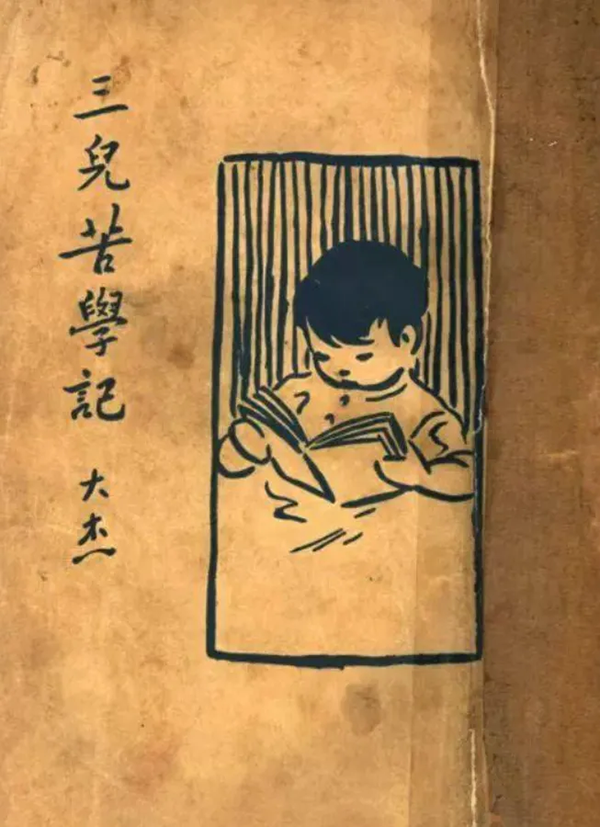 三兒苦學記
大杰